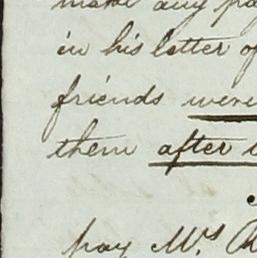 make any pa
in his letter of
friends were
them after
pay Mrs.